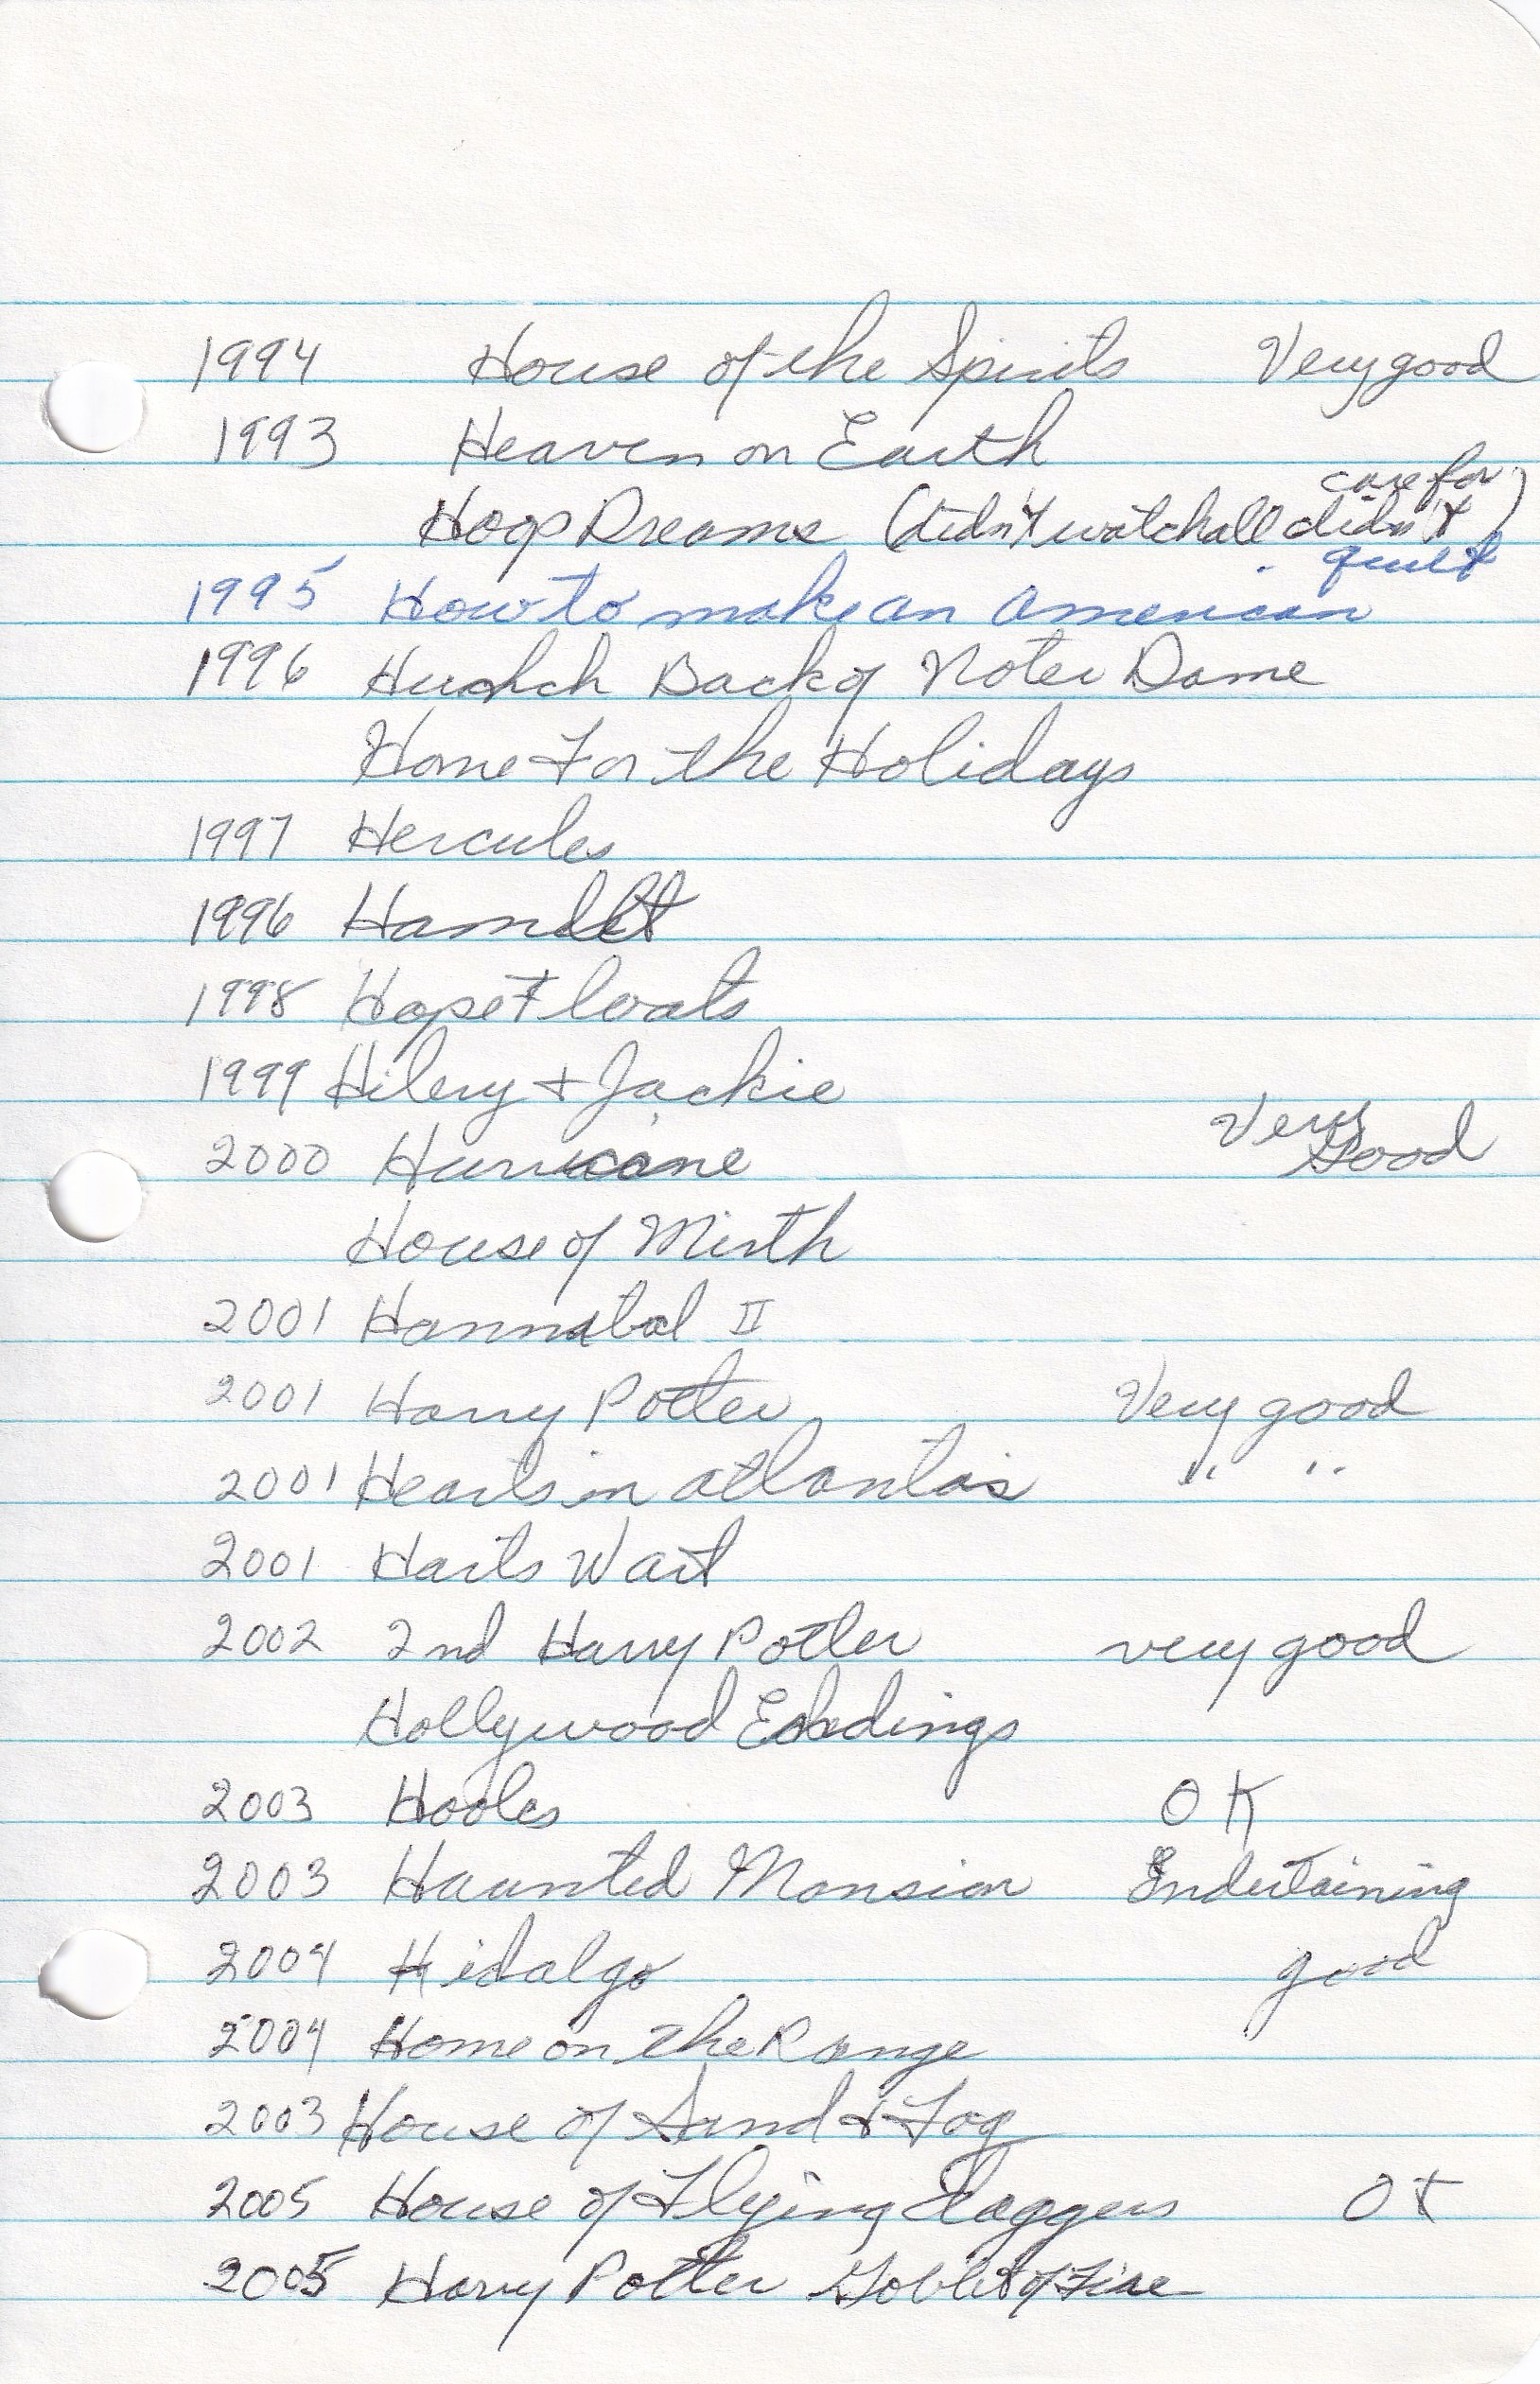 1994 House of the Spirits Very good
1993 Heaven on Earth
Hoop Dreams (didn't watch all didn't care for)
1995 How to make an American quilt
1996 Hunch Back of Noter Dame
Home For the Holidays
1997 Hercules
1996 Hamlet
1998 Hope Floats
1999 Hilery + Jackie
2000 Hurricane Very Good
House of Mirth
2001 Hannabal II
2001 Harry Potter Very good
2001 Hearts in atlantis " "
2001 Harts Wart
2002 2nd Harry Potter very good
Hollywood Endings
2003 OK
2003 Haunted Mansion Endertaining
2004 Hidalgo good
2004 Home on the Range
2003 House of Sand & Fog
2005 House of Flying Daggers OK
2005 Harry Potter Goblet of Fire